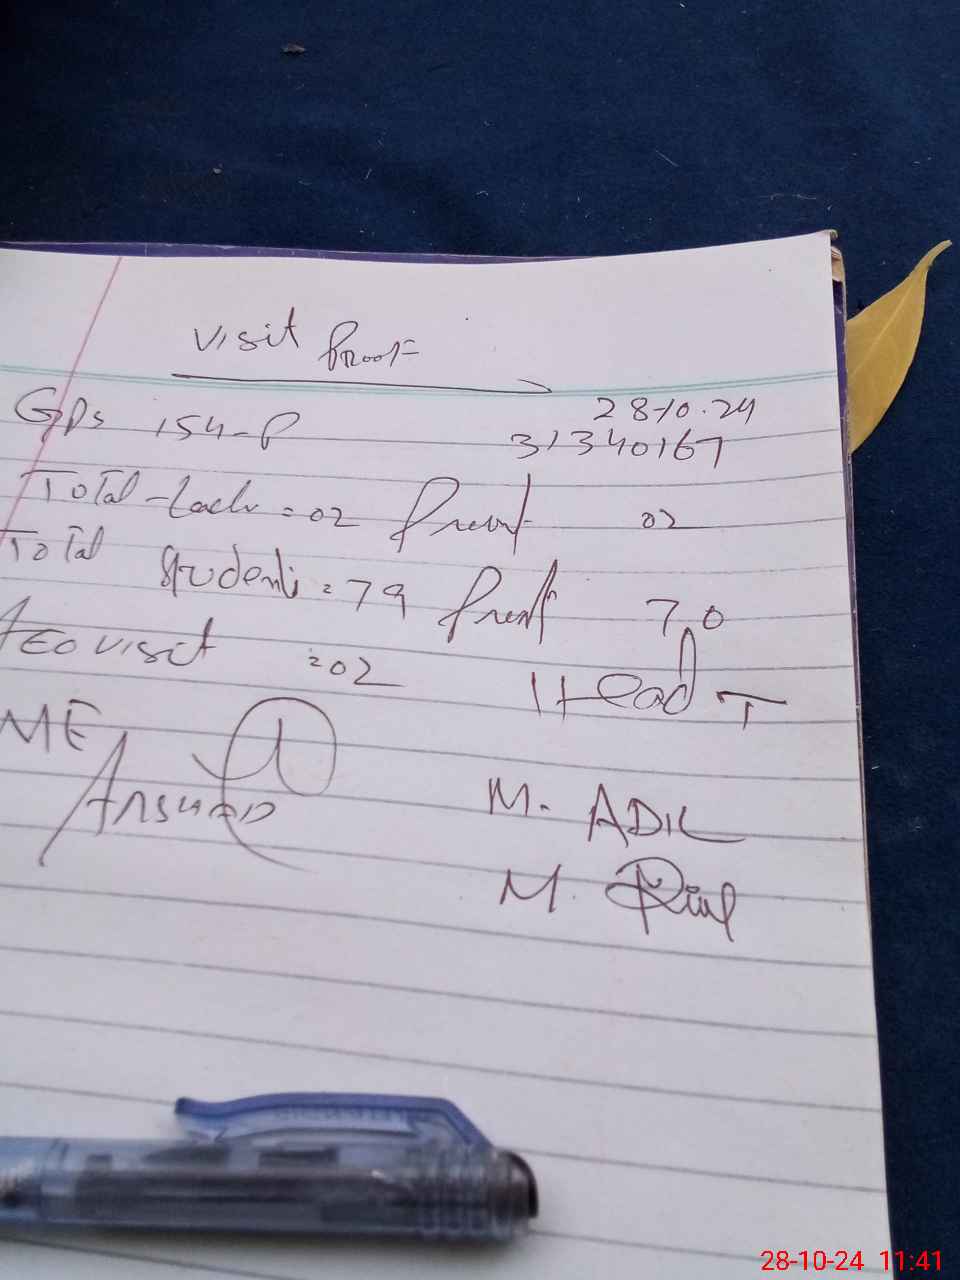 Visit Proof
GPS 154-P
28-10-24
31340167
Total Teach = 02 Present 02
Total Students = 79 Present 70
AEO visit = 02
Head T
ME
Arshad
M. ADIL
M.
28-10-24 11:41